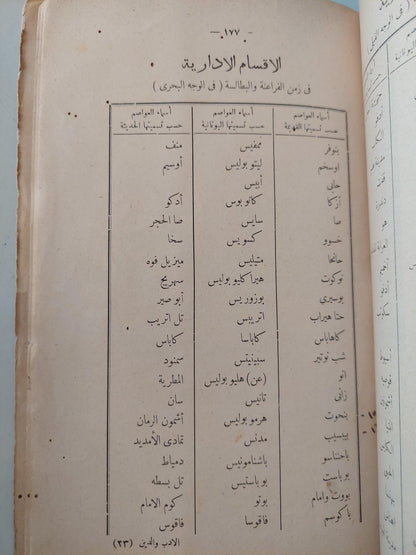 — ١٧٧ —
الاقسام الادارية
فى زمن الفراعنة والبطالسة ( فى الوجه البحرى )
أسماء العواصم أسماء العواصم أسماء العواصم
حسب تسميتها القديمة حسب تسميتها اليونانية حسب تسميتها الحديثة
ينوفر ممفيس منف
اوسخم ليتو بوليس أوسيم
حابى أبيس
أزكا كانو بوس أدكو
صا سايس صا الحجر
خسوو كسويس سخا
حانحا متيليس ميزيل فوه
نوكوت هيرا كليو بوليس سهريج
بوسيرى بوزوريس أبو صير
حتا هيراب اتريبس تل اتريب
كاهاباس كاباسا كاباس
شب نوتير سبينيتس سمنود
انو (عن) هليو بوليس المطرية
زانى تانيس سان
بنحوت هرمو بوليس أشمون الرمان
بيبسيب مدنس تمادى الأمديد
باختناسو باشنامونيس دمياط
بو باست بو باستيس تل بسطه
بووت وامام بوتو كوم الامام
باكوسم فاقوسا فاقوس
الادب والدين (٢٣)